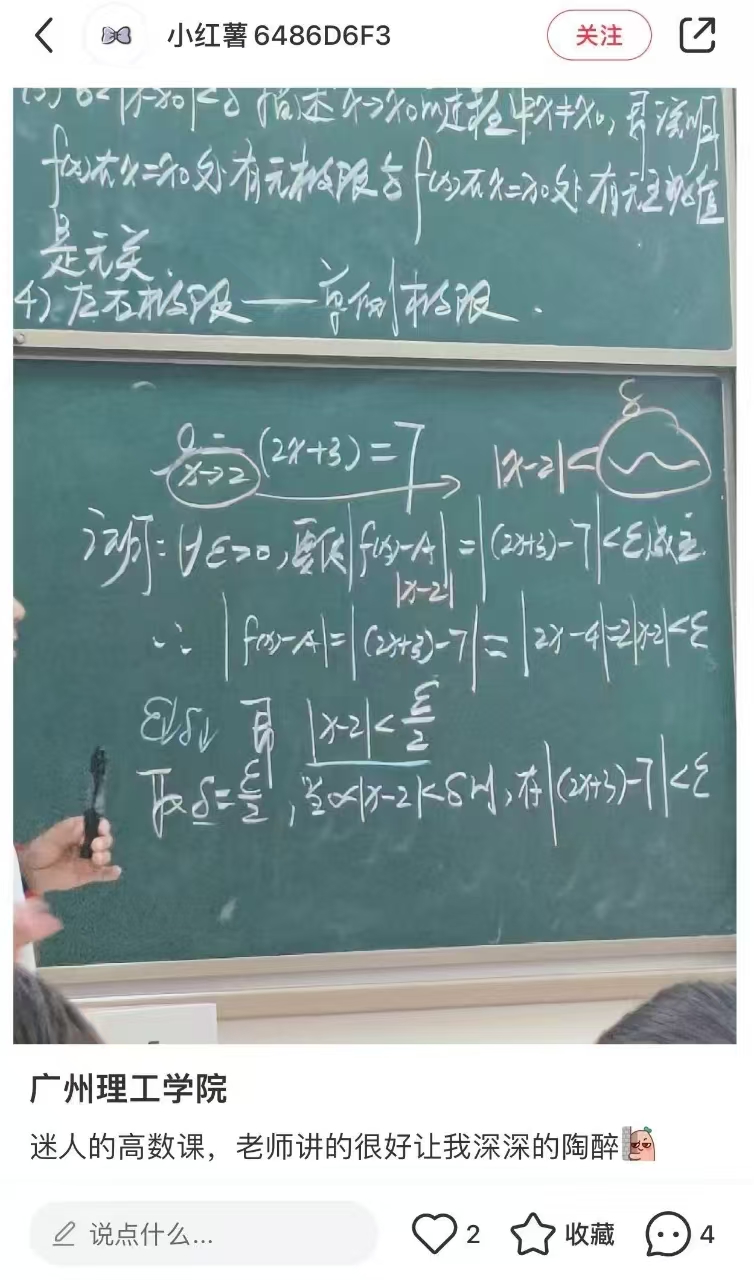 小红薯 6486D6F3
关注
(3) 0<|x-x₀|<δ 描述x→x₀的过程中x≠x₀, 即说明
f(x)在x=x₀处有无极限与f(x)在x=x₀处有无
是无关.
4) 左右极限——单侧极限.
x→2 (2x+3)=7
|x-2|< δ
证明: ∀ε>0, 要使|f(x)-A|=|(2x+3)-7|<ε成立.
|x-2|
∵ |f(x)-A|=|(2x+3)-7|=|2x-4|=2|x-2|<ε
ε↓δ↓ 即 |x-2|<ε/2
取δ=ε/2, 当0<|x-2|<δ时, 有|(2x+3)-7|<ε
广州理工学院
迷人的高数课，老师讲的很好让我深深的陶醉
说点什么...
2
收藏
4